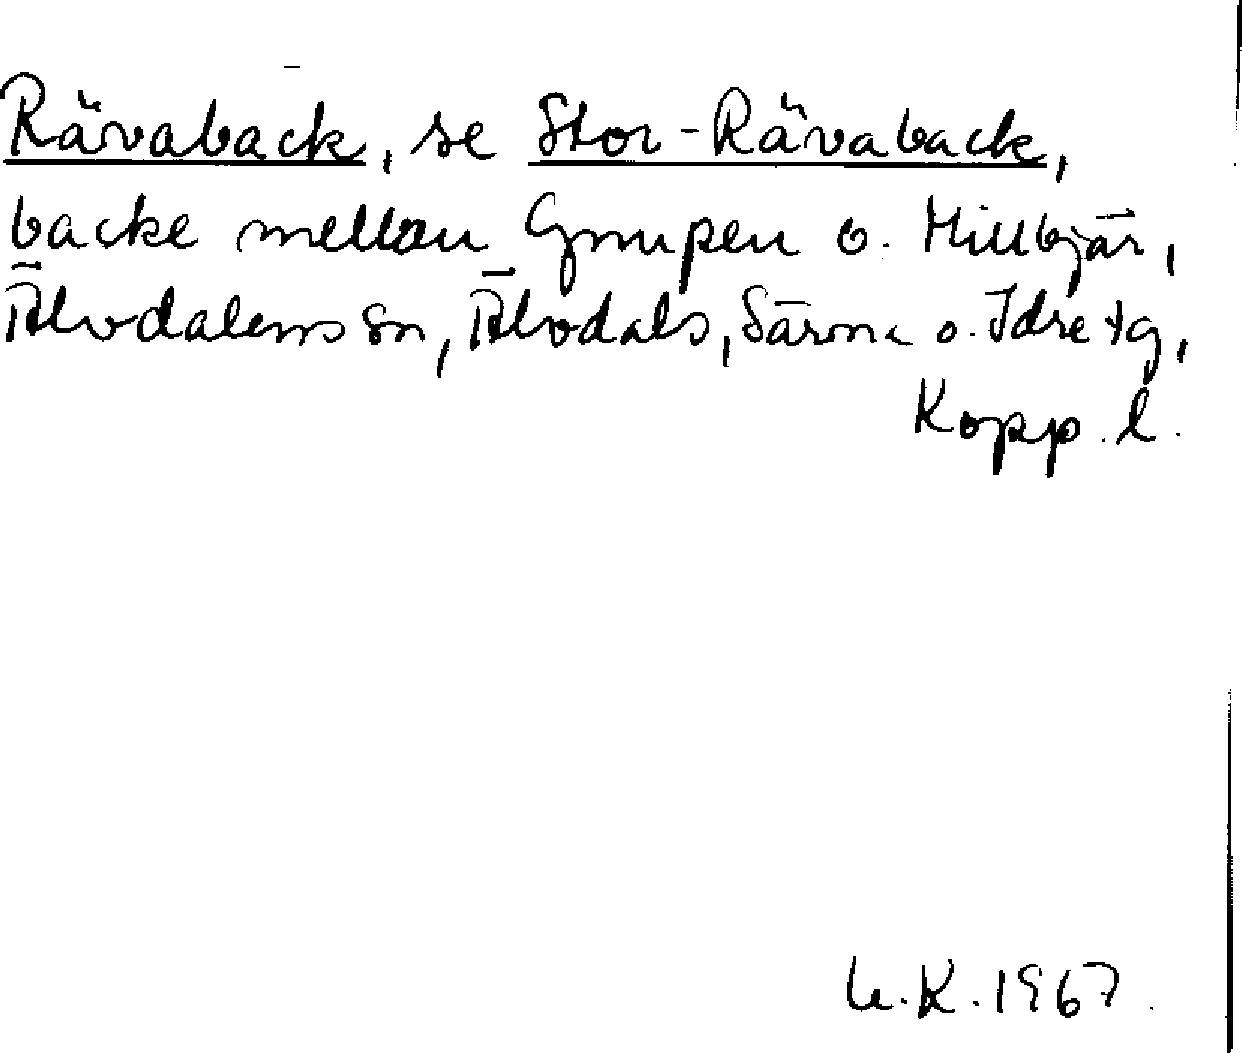 Rävaback, se Stor-Rävaback,
backe mellan Gmupen o. Hillbjär,
Älvdalens sn, Älvdals, Särna o. Idre tg,
Kopp. l.
U.K. 1967.